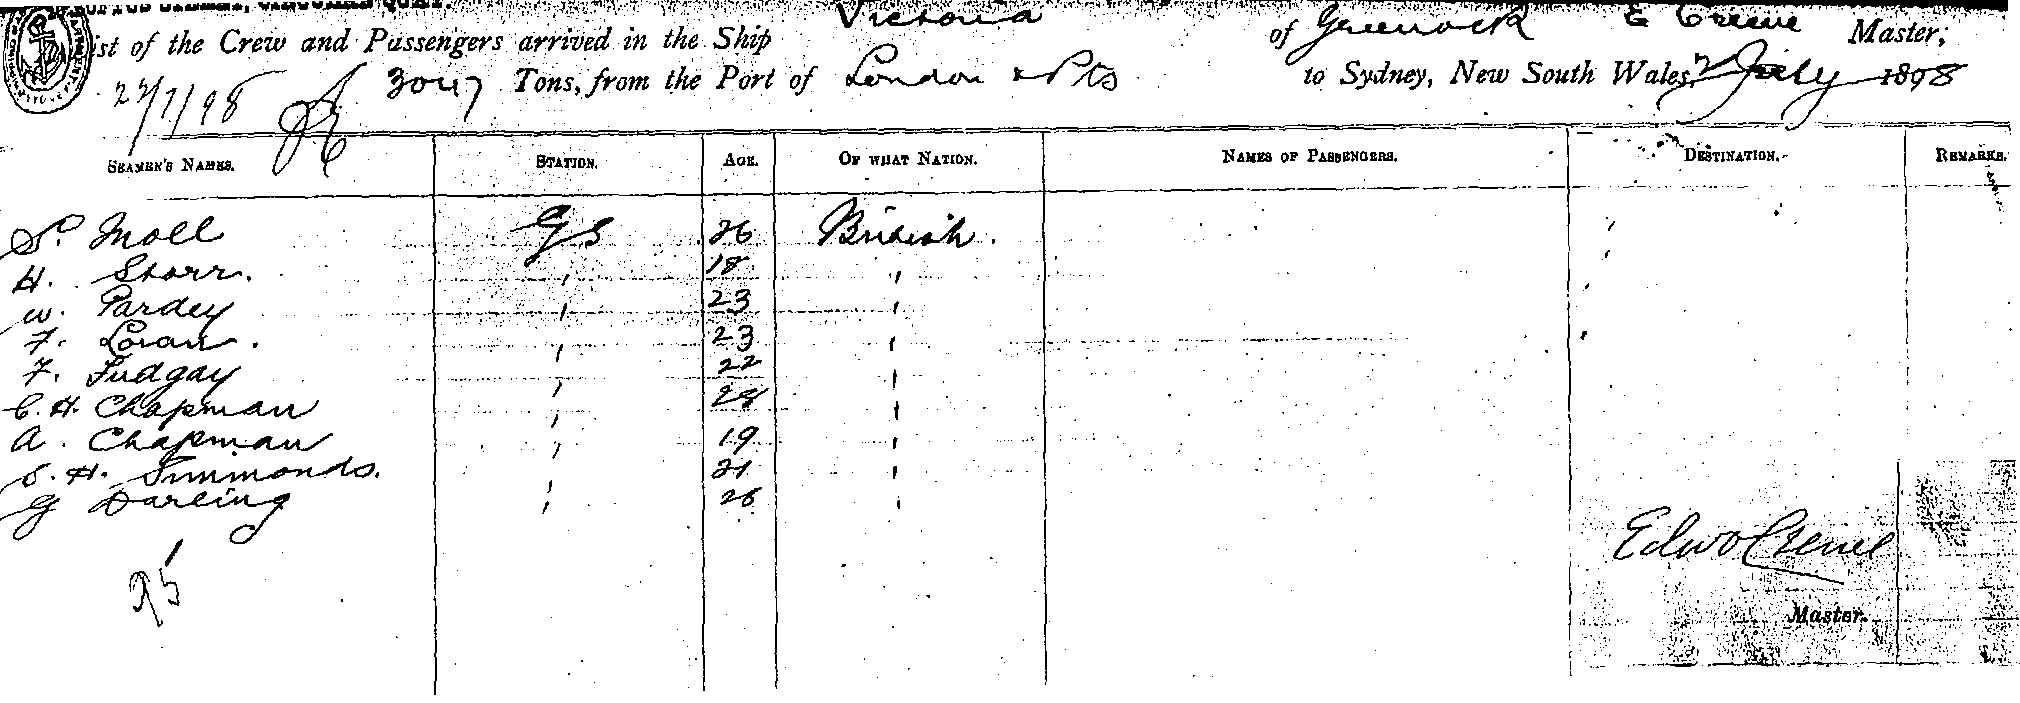 Victoria of Greenock E Creeve Master;
List of the Crew and Passengers arrived in the Ship
22/7/98 3047 Tons, from the Port of London & Pts to Sydney, New South Wales, July 1898
SEAMEN'S NAMES. STATION. AGE. OF WHAT NATION. NAMES OF PASSENGERS. DESTINATION. REMARKS.
S. Moll GS 26 British.
H. Storr. " 18 "
W. Pardey " 23 "
F. Loran. " 23 "
F. Judgay " 22 "
C. H. Chapman " 28 "
A. Chapman " 19 "
S. H. Simmonds. " 21 "
G Darling " 26 "
95
Master.